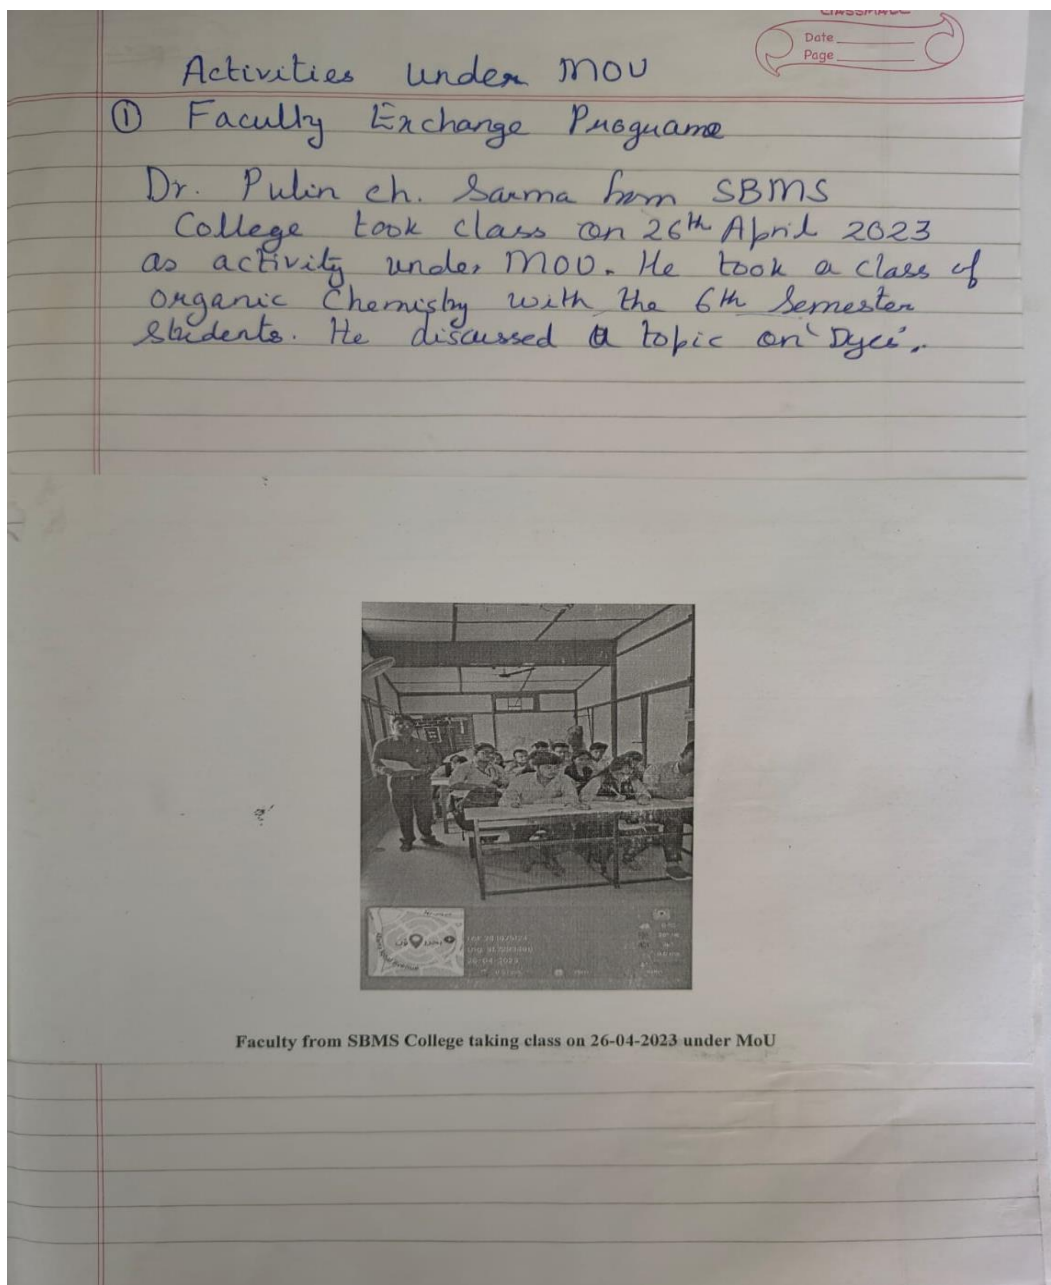 classmate
Date
Page
Activities under MOU
① Faculty Exchange Programe
Dr. Pulin ch. Sarma from SBMS
College took class on 26th April 2023
as activity under MOU. He took a class of
organic Chemistry with the 6th Semester
Students. He discussed a topic on 'Dyes'.
26-04-2023
Faculty from SBMS College taking class on 26-04-2023 under MoU